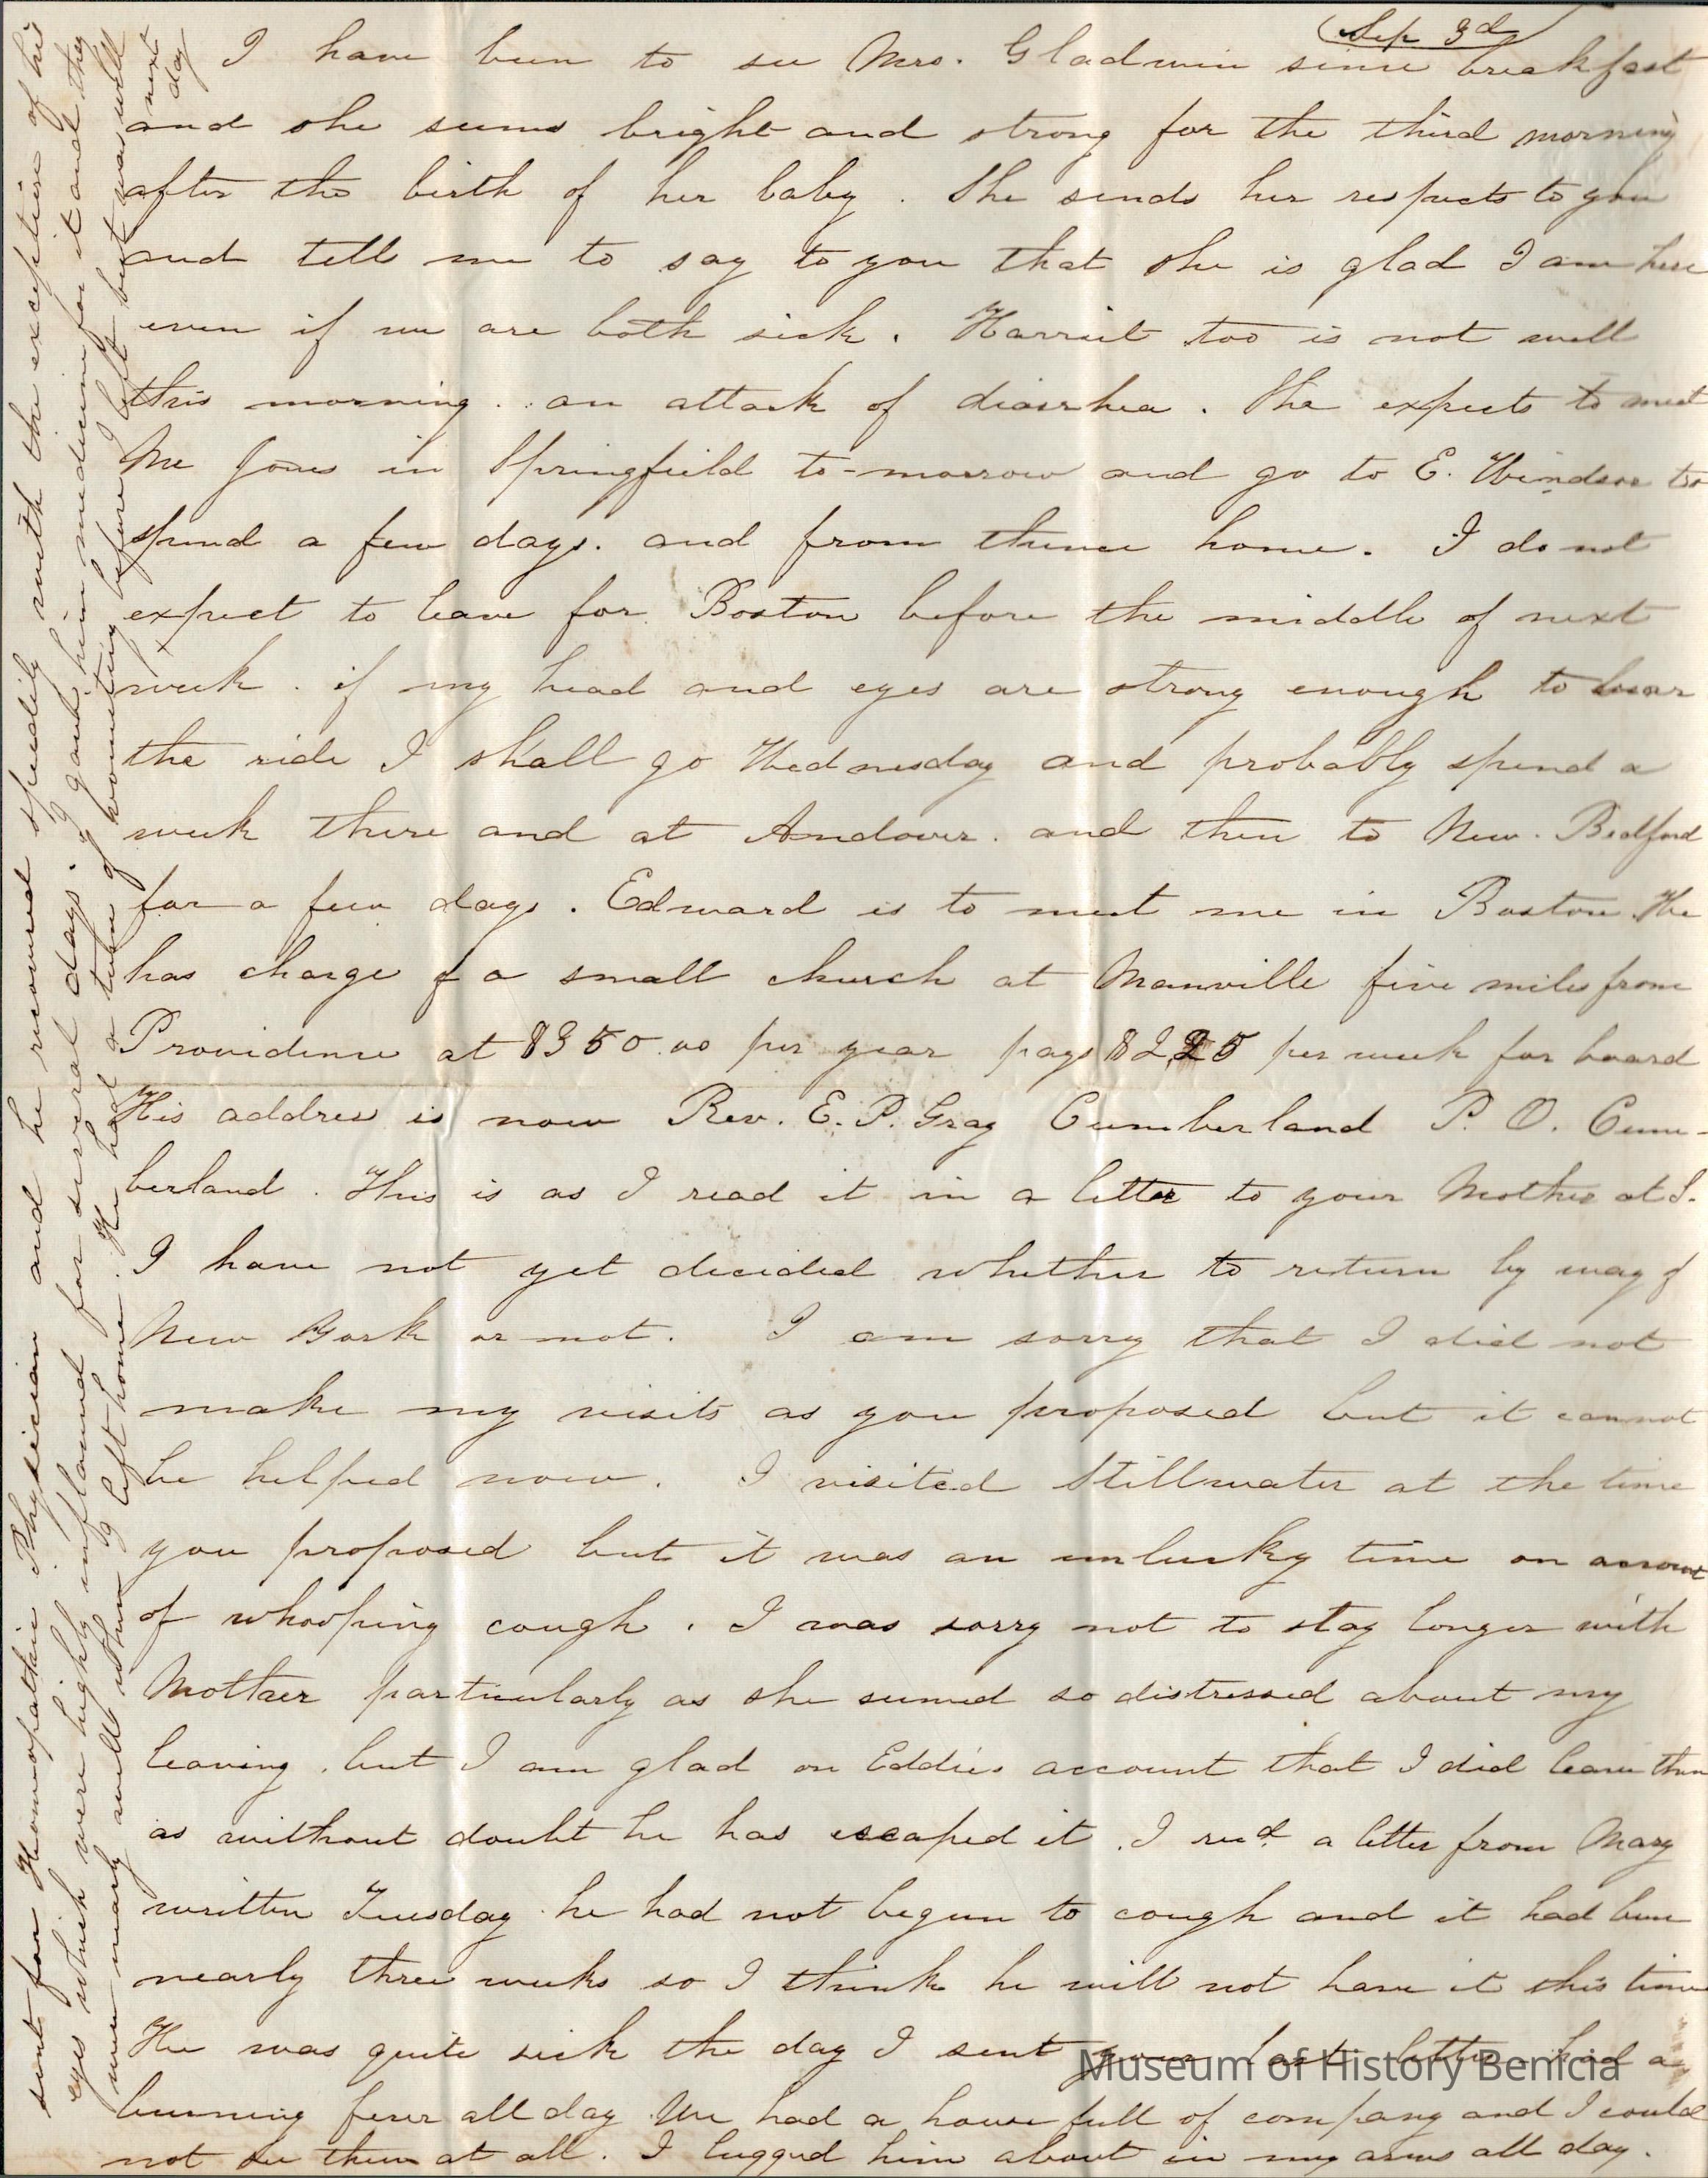 Sep 3d
I have been to see Mrs. Gladwin since breakfast
and she seems bright and strong for the third morning
after the birth of her baby. She sends her respects to you
and tell me to say to you that she is glad I am here
even if we are both sick. Harriet too is not well
this morning. an attack of diarrhea. She expects to meet
Mr Jones in Springfield to-morrow and go to E. Windsor to
spend a few days. and from thence home. I do not
expect to leave for Boston before the middle of next
week. if my head and eyes are strong enough to bear
the ride I shall go Wednesday and probably spend a
week there and at Andover. and then to New-Bedford
for a few days. Edward is to meet me in Boston He
has charge of a small church at Manville five miles from
Providence at $350.00 per year pays $2.25 per week for board
His address is now Rev. E. P. Gray Cumberland P. O. Cum-
berland. This is as I read it in a letter to your Mother at S.
I have not yet decided whether to return by way of
New York or not. I am sorry that I did not
make my visits as you proposed but it cannot
be helped now. I visited Stillwater at the time
you proposed but it was an unlucky time on account
of whooping cough. I was sorry not to stay longer with
Mother particularly as she seemed so distressed about my
leaving. but I am glad on Eddies account that I did leave then
as without doubt he has escaped it. I recd. a letter from Mary
written Tuesday he had not begun to cough and it had been
nearly three weeks so I think he will not have it this time
He was quite sick the day I sent your last letter had a
burning fever all day We had a house full of company and I could
not see them at all. I lugged him about in my arms all day.
sent for Homeopathic Physician and he recovered speedily with the exception of his
eyes which were highly inflamed for several days. I gave him medicine for it and they
were nearly well when I left home. He had a turn of vomiting before I left but was well
next
day
Museum of History Benicia